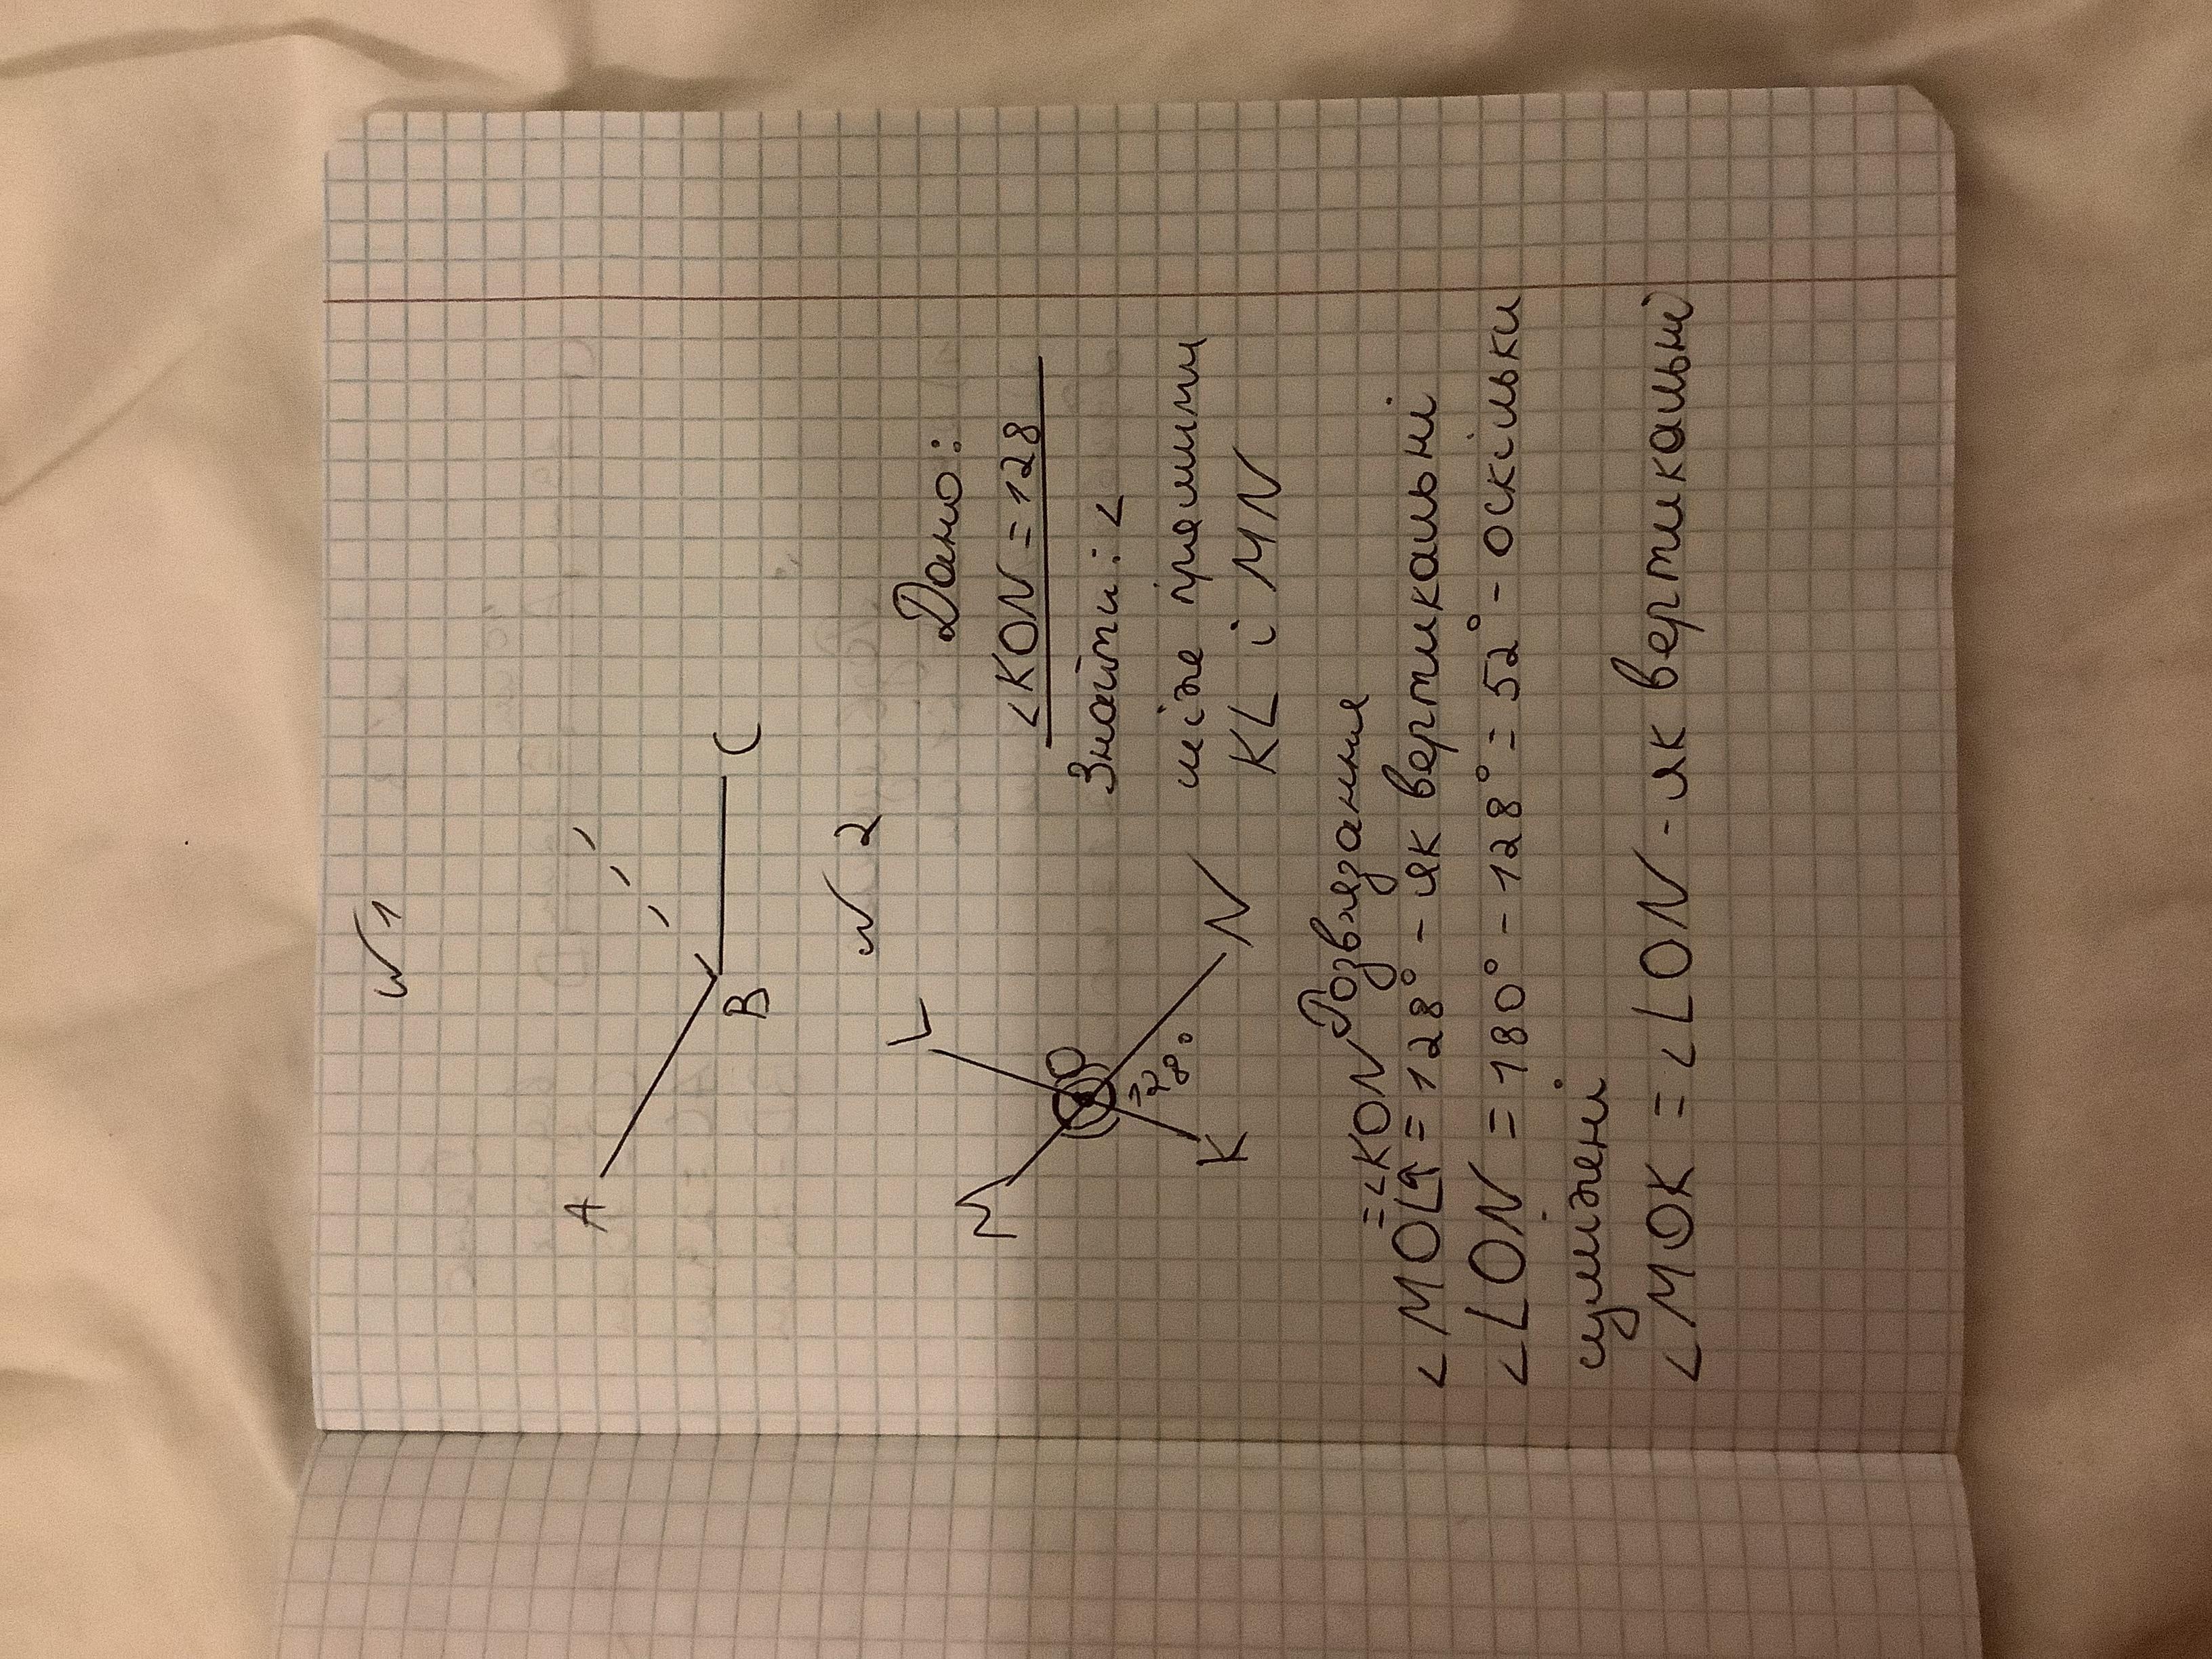 №1
A
B
C
№2
M
L
O
128°
K
N
Дано:
∠KON = 128
Знайти: ∠
між прямими
KL і MN
Розвязання
=∠KON
∠MOL = 128° - як вертикальні
∠LON = 180° - 128° = 52° - оскільки
суміжені
∠MOK = ∠LON - як вертикальні